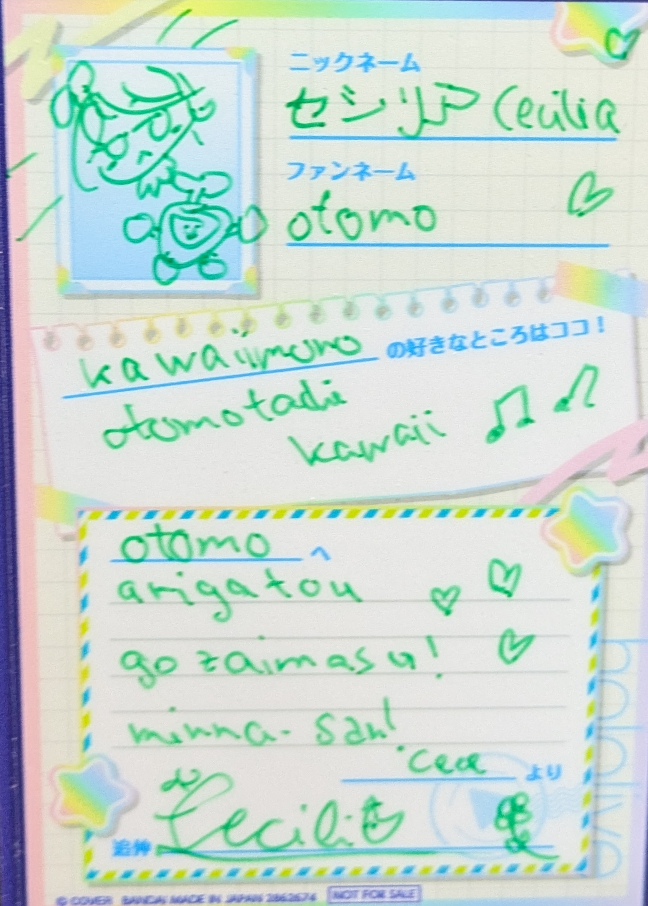 ニックネーム
セシリア Cecilia
ファンネーム
otomo
kawaiimono の好きなところはココ！
otomotachi
kawaii
otomo へ
arigatou
gozaimasu!
minna-san!
Cece より
追伸 Cecilia
hololive
© COVER BANDAI MADE IN JAPAN 2862674 NOT FOR SALE